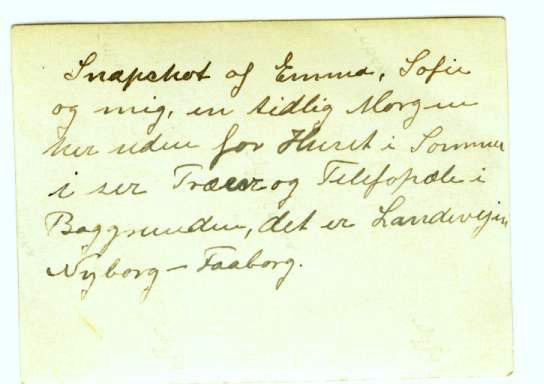 Snapshot af Emma, Sofie
og mig, en tidlig Morgen
her uden for Huset i Sommer
i ser Træer og Telefopæle i
Baggrunden, det er Landevejen
Nyborg – Faaborg.